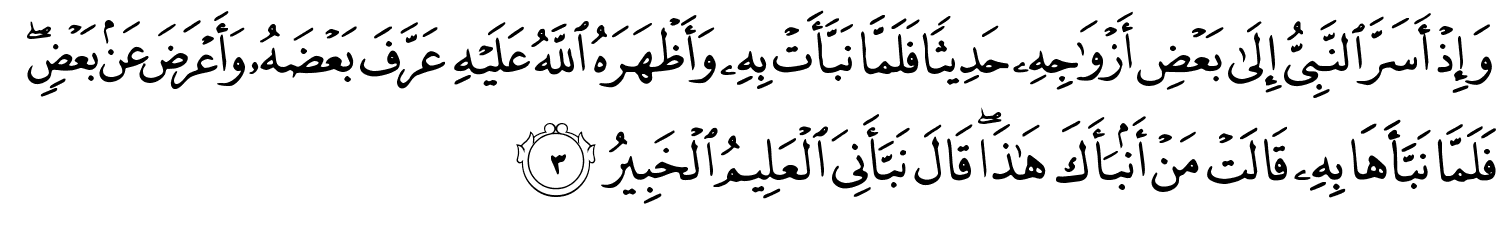 وَإِذْ أَسَرَّ ٱلنَّبِىُّ إِلَىٰ بَعْضِ أَزْوَٰجِهِۦ حَدِيثًا فَلَمَّا نَبَّأَتْ بِهِۦ وَأَظْهَرَهُ ٱللَّهُ عَلَيْهِ عَرَّفَ بَعْضَهُۥ وَأَعْرَضَ عَنۢ بَعْضٍۖ
فَلَمَّا نَبَّأَهَا بِهِۦ قَالَتْ مَنْ أَنۢبَأَكَ هَٰذَاۖ قَالَ نَبَّأَنِىَ ٱلْعَلِيمُ ٱلْخَبِيرُ ٣